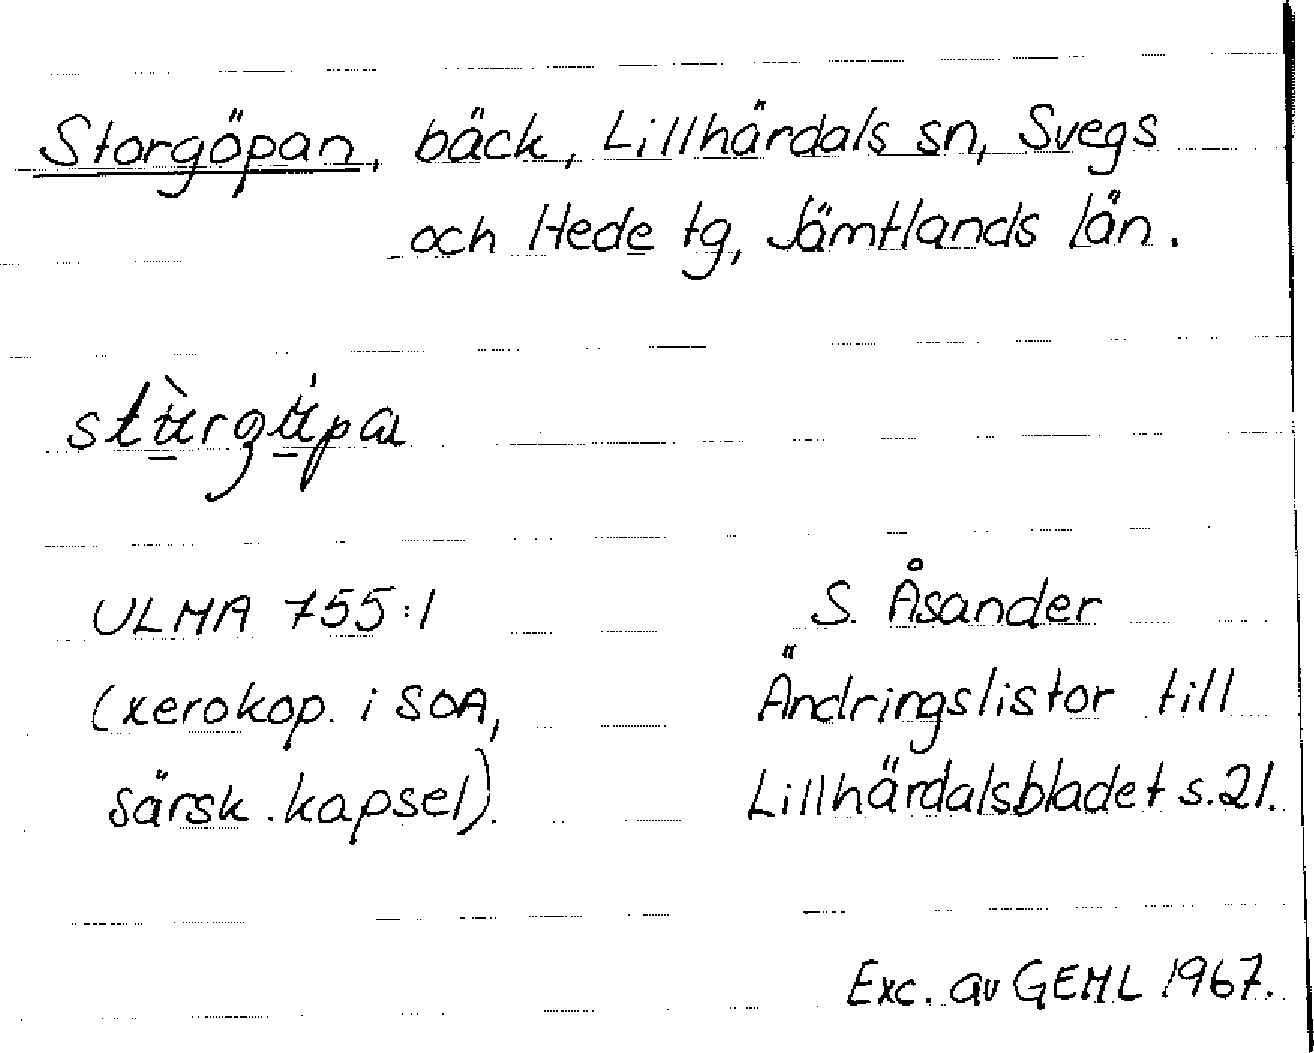 Storgöpan, bäck, Lillhärdals sn, Svegs
och Hede tg, Jämtlands län.
ULMA 755:1
(xerokop. i SOA,
särsk. kapsel).
S. Åsander
Ändringslistor till
Lillhärdalsbladet s. 21.
Exc. av GEHL 1967.